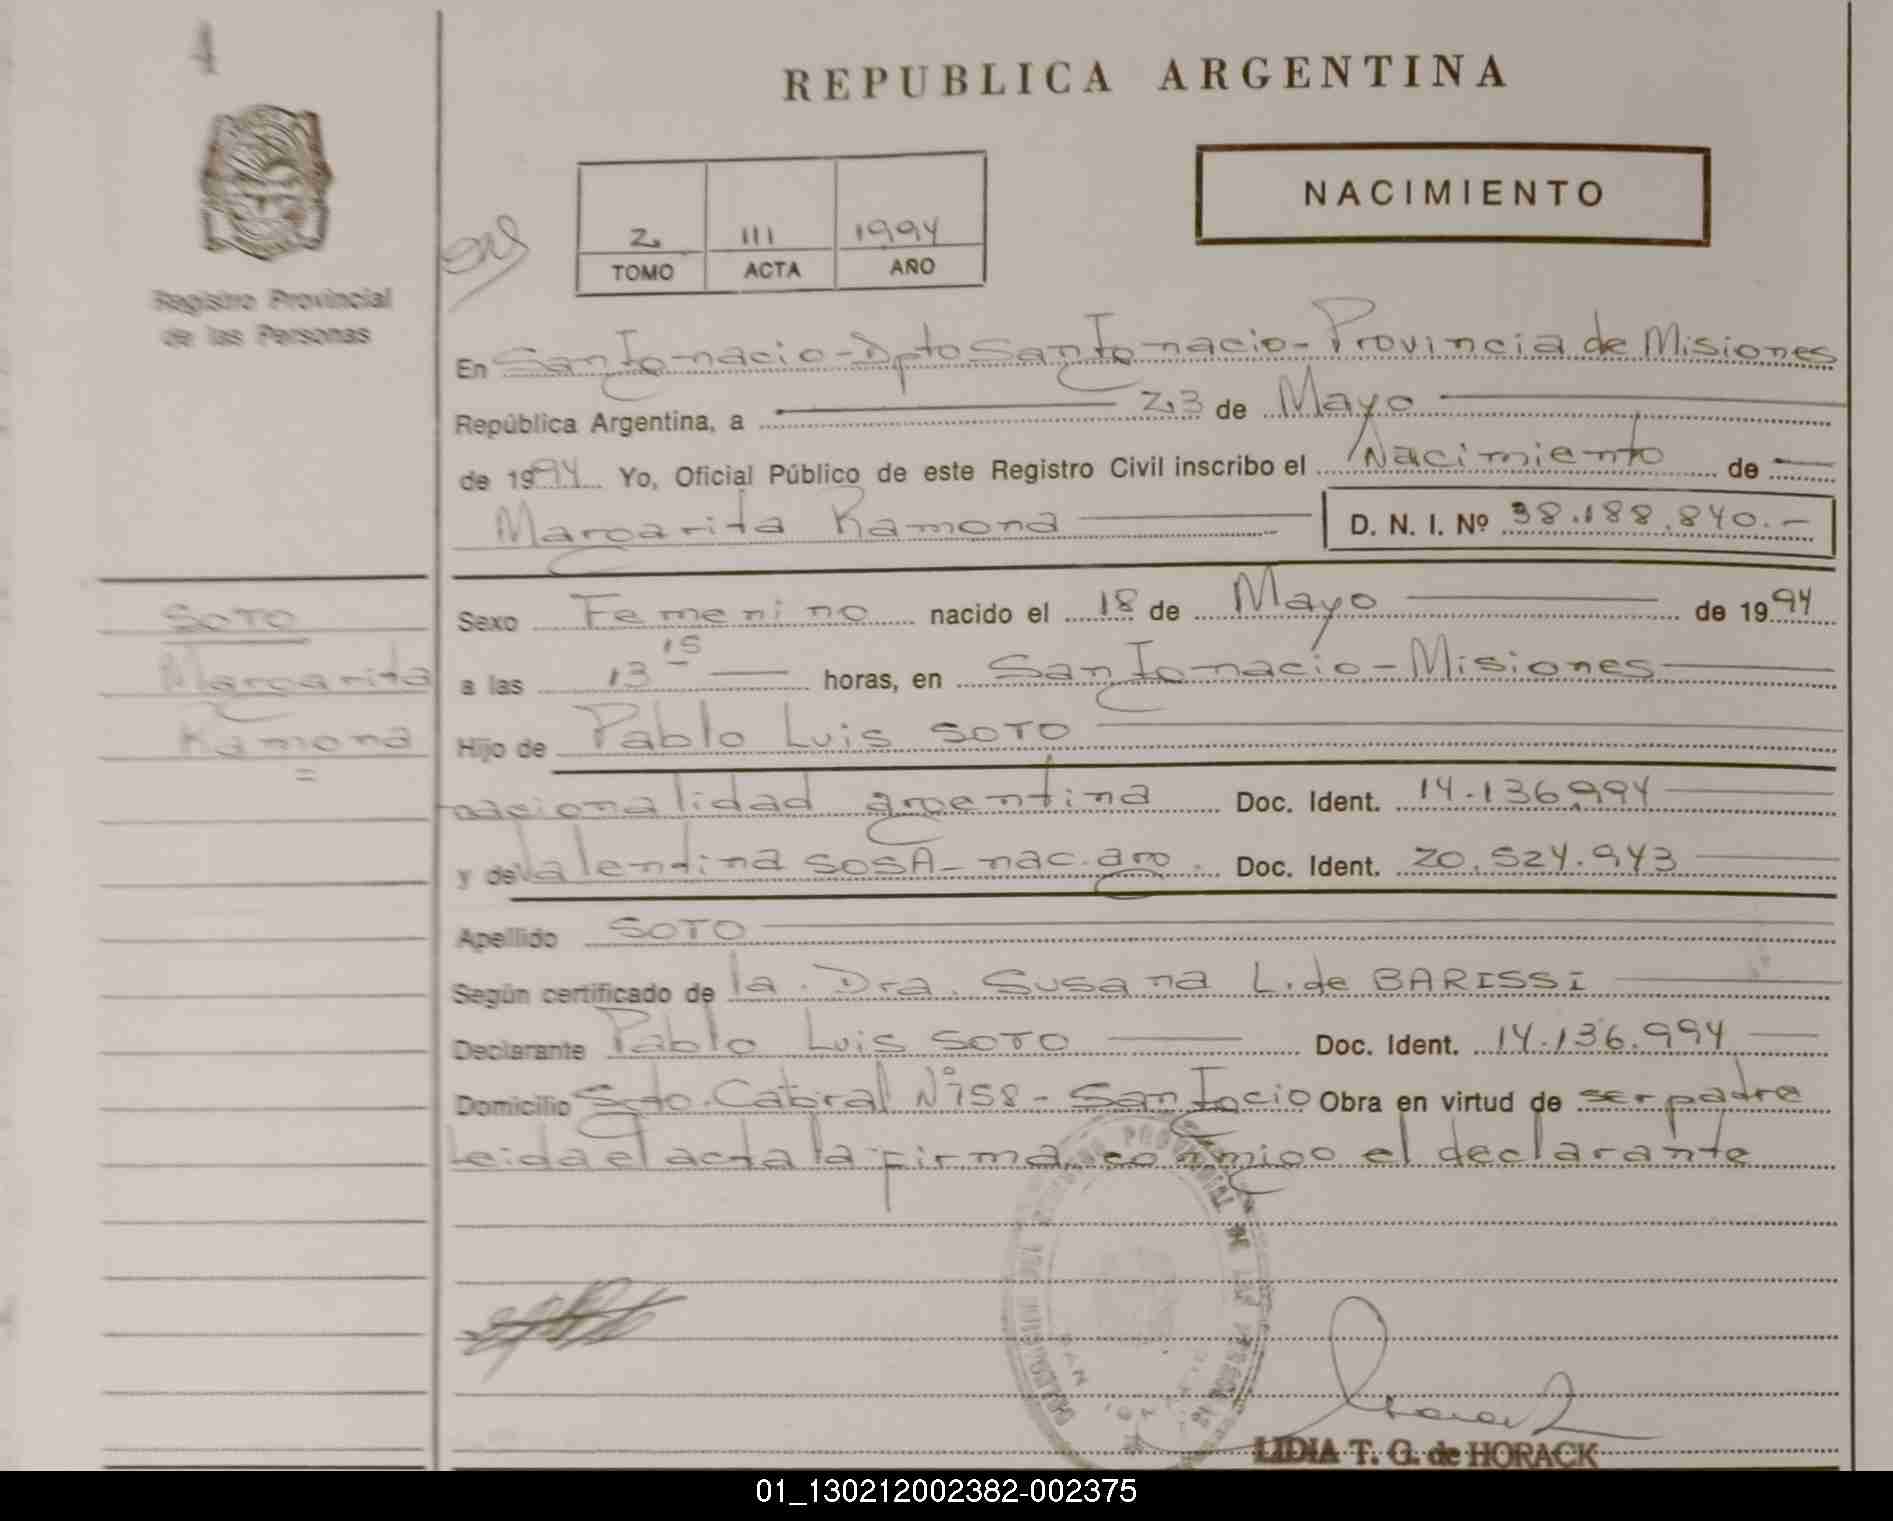 REPUBLICA ARGENTINA
NACIMIENTO
2 111 1994
TOMO ACTA AÑO
Registro Provincial
de las Personas
En San Ignacio - Dpto San Ignacio - Provincia de Misiones
República Argentina, a 23 de Mayo
de 1994 Yo, Oficial Público de este Registro Civil inscribo el Nacimiento de
Margarita Ramona D. N. I. Nº 38.188.840.-
SOTO
Margarita
Ramona
Sexo Femenino nacido el 18 de Mayo de 1994
a las 13 15 horas, en San Ignacio - Misiones
Hijo de Pablo Luis SOTO
nacionalidad argentina Doc. Ident. 14.136.994
y de Valentina SOSA - nac. arg. Doc. Ident. 20.524.943
Apellido SOTO
Según certificado de la. Dra. Susana L. de BARISSI
Declarante Pablo Luis SOTO Doc. Ident. 14.136.994
Domicilio Sgto. Cabral Nº 758 - San Igcio Obra en virtud de ser padre
Leida el acta la firma conmigo el declarante
LIDIA T. G. de HORACK
01_130212002382-002375